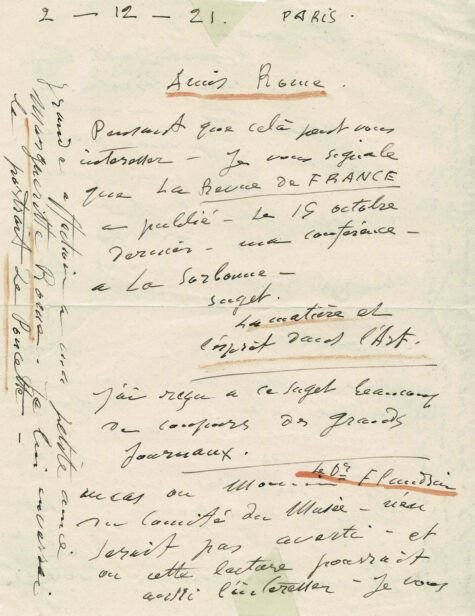 2 - 12 - 21. PARIS.
Amis Rome.
Pensant que celà peut vous
interesser - Je vous signale
que La Revue de FRANCE
a publié - Le 15 octobre
dernier - ma conférence -
a La Sorbonne -
suget.
La matière et
l'esprit dans l'Art.
j'ai reçu a ce suget beaucoup
de coupures des grands
journaux.
Le Dr Flandrin
au cas ou
du Comité du Musée - n'en
serait pas averti - et
ou cette lecture pourrait
aussi l'interesser - Je vous
grande affection a ma petite amie
Margueritte Rome - Je lui
le portrait de Poucette -